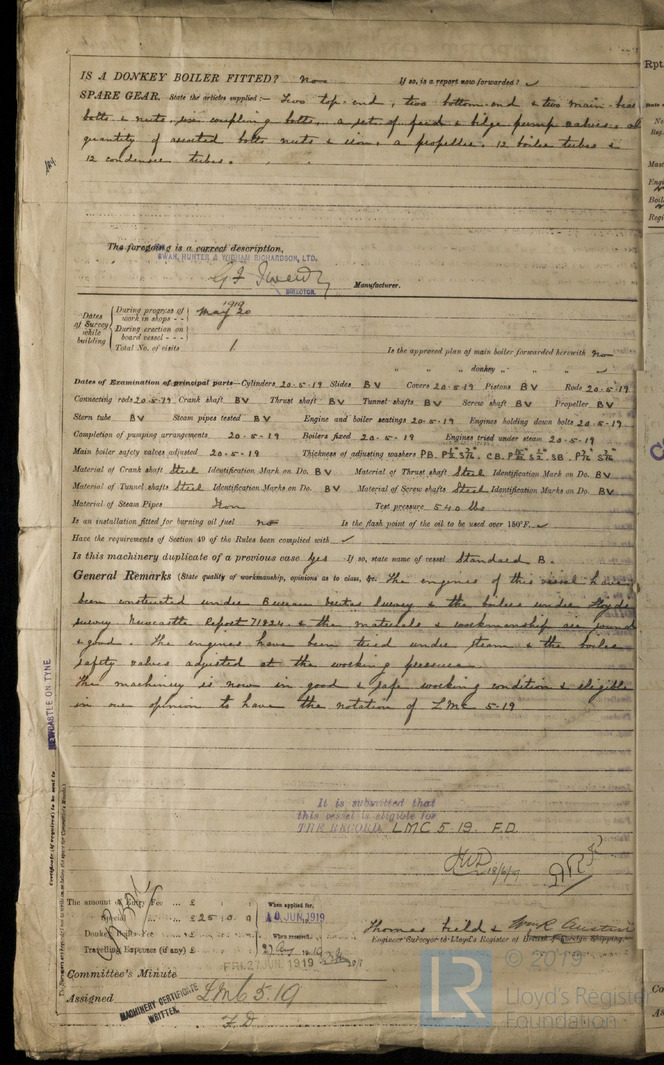 IS A DONKEY BOILER FITTED? No If so, is a report now forwarded? ✓
SPARE GEAR. State the articles supplied:— Two top-end, two bottom-end & two main-bear
bolts & nuts, six coupling bolts, a set of feed & bilge pump valves, a
quantity of assorted bolts nuts & iron, a propeller, 12 boiler tubes &
12 condenser tubes.
The foregoing is a correct description,
SWAN, HUNTER & WIGHAM RICHARDSON, LTD.
DIRECTOR. Manufacturer.
Dates of Survey while building
During progress of work in shops - - 1919 May 20
During erection on board vessel - - -
Total No. of visits 1
Is the approved plan of main boiler forwarded herewith no
" " " donkey " " " ✓
Dates of Examination of principal parts—Cylinders 20-5-19 Slides BV Covers 20-5-19 Pistons BV Rods 20-5-19
Connecting rods 20-5-19 Crank shaft BV Thrust shaft BV Tunnel shafts BV Screw shaft BV Propeller BV
Stern tube BV Steam pipes tested BV Engine and boiler seatings 20-5-19 Engines holding down bolts 20-5-19
Completion of pumping arrangements 20-5-19 Boilers fixed 20-5-19 Engines tried under steam 20-5-19
Main boiler safety valves adjusted 20-5-19 Thickness of adjusting washers PB. CB. SB.
Material of Crank shaft Steel Identification Mark on Do. BV Material of Thrust shaft Steel Identification Mark on Do. BV
Material of Tunnel shafts Steel Identification Marks on Do. BV Material of Screw shafts Steel Identification Marks on Do. BV
Material of Steam Pipes Iron Test pressure 540 lbs
Is an installation fitted for burning oil fuel no Is the flash point of the oil to be used over 150°F. ✓
Have the requirements of Section 49 of the Rules been complied with ✓
Is this machinery duplicate of a previous case Yes If so, state name of vessel Standard B.
General Remarks (State quality of workmanship, opinions as to class, &c. The engines of this vessel have
been constructed under Bureau Veritas Survey & the boilers under Lloyds
survey Newcastle Report 71924 & the materials & workmanship are sound
& good. The engines have been tried under steam & the boiler
safety valves adjusted at the working pressure.
The machinery is now in good & safe working condition & eligible
in our opinion to have the notation of LMC 5-19
NEWCASTLE ON TYNE
It is submitted that
this vessel is eligible for
THE RECORD. LMC 5.19. F.D.
18/6/19
The amount of Entry Fee ... £ : :
Special ... £ 25 . 0 . 0
Donkey Boiler Fee ... £ : :
Travelling Expenses (if any) £ : :
When applied for,
10 JUN. 1919
When received,
Thomas Field & Wm R Austin
Engineer Surveyor to Lloyd's Register of British & Foreign Shipping.
Committee's Minute FRI. 27 JUN 1919
Assigned LMC 5.19
F.D.
MACHINERY CERTIFICATE
WRITTEN.
© 2019
LR
Lloyd's Register
Foundation
Rpt.